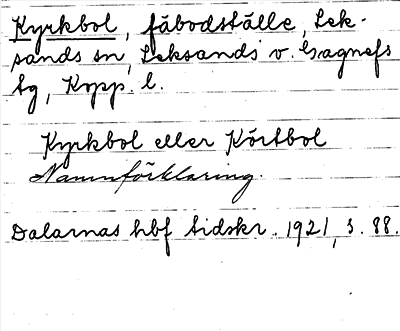 Kyrkbol, fäbodställe, Lek-
sands sn, Leksands o. Gagnefs
tg, Kopp. l.
Kyrkbol eller Körtbol
Namnförklaring.
Dalarnas hbf tidskr. 1921, s. 88.